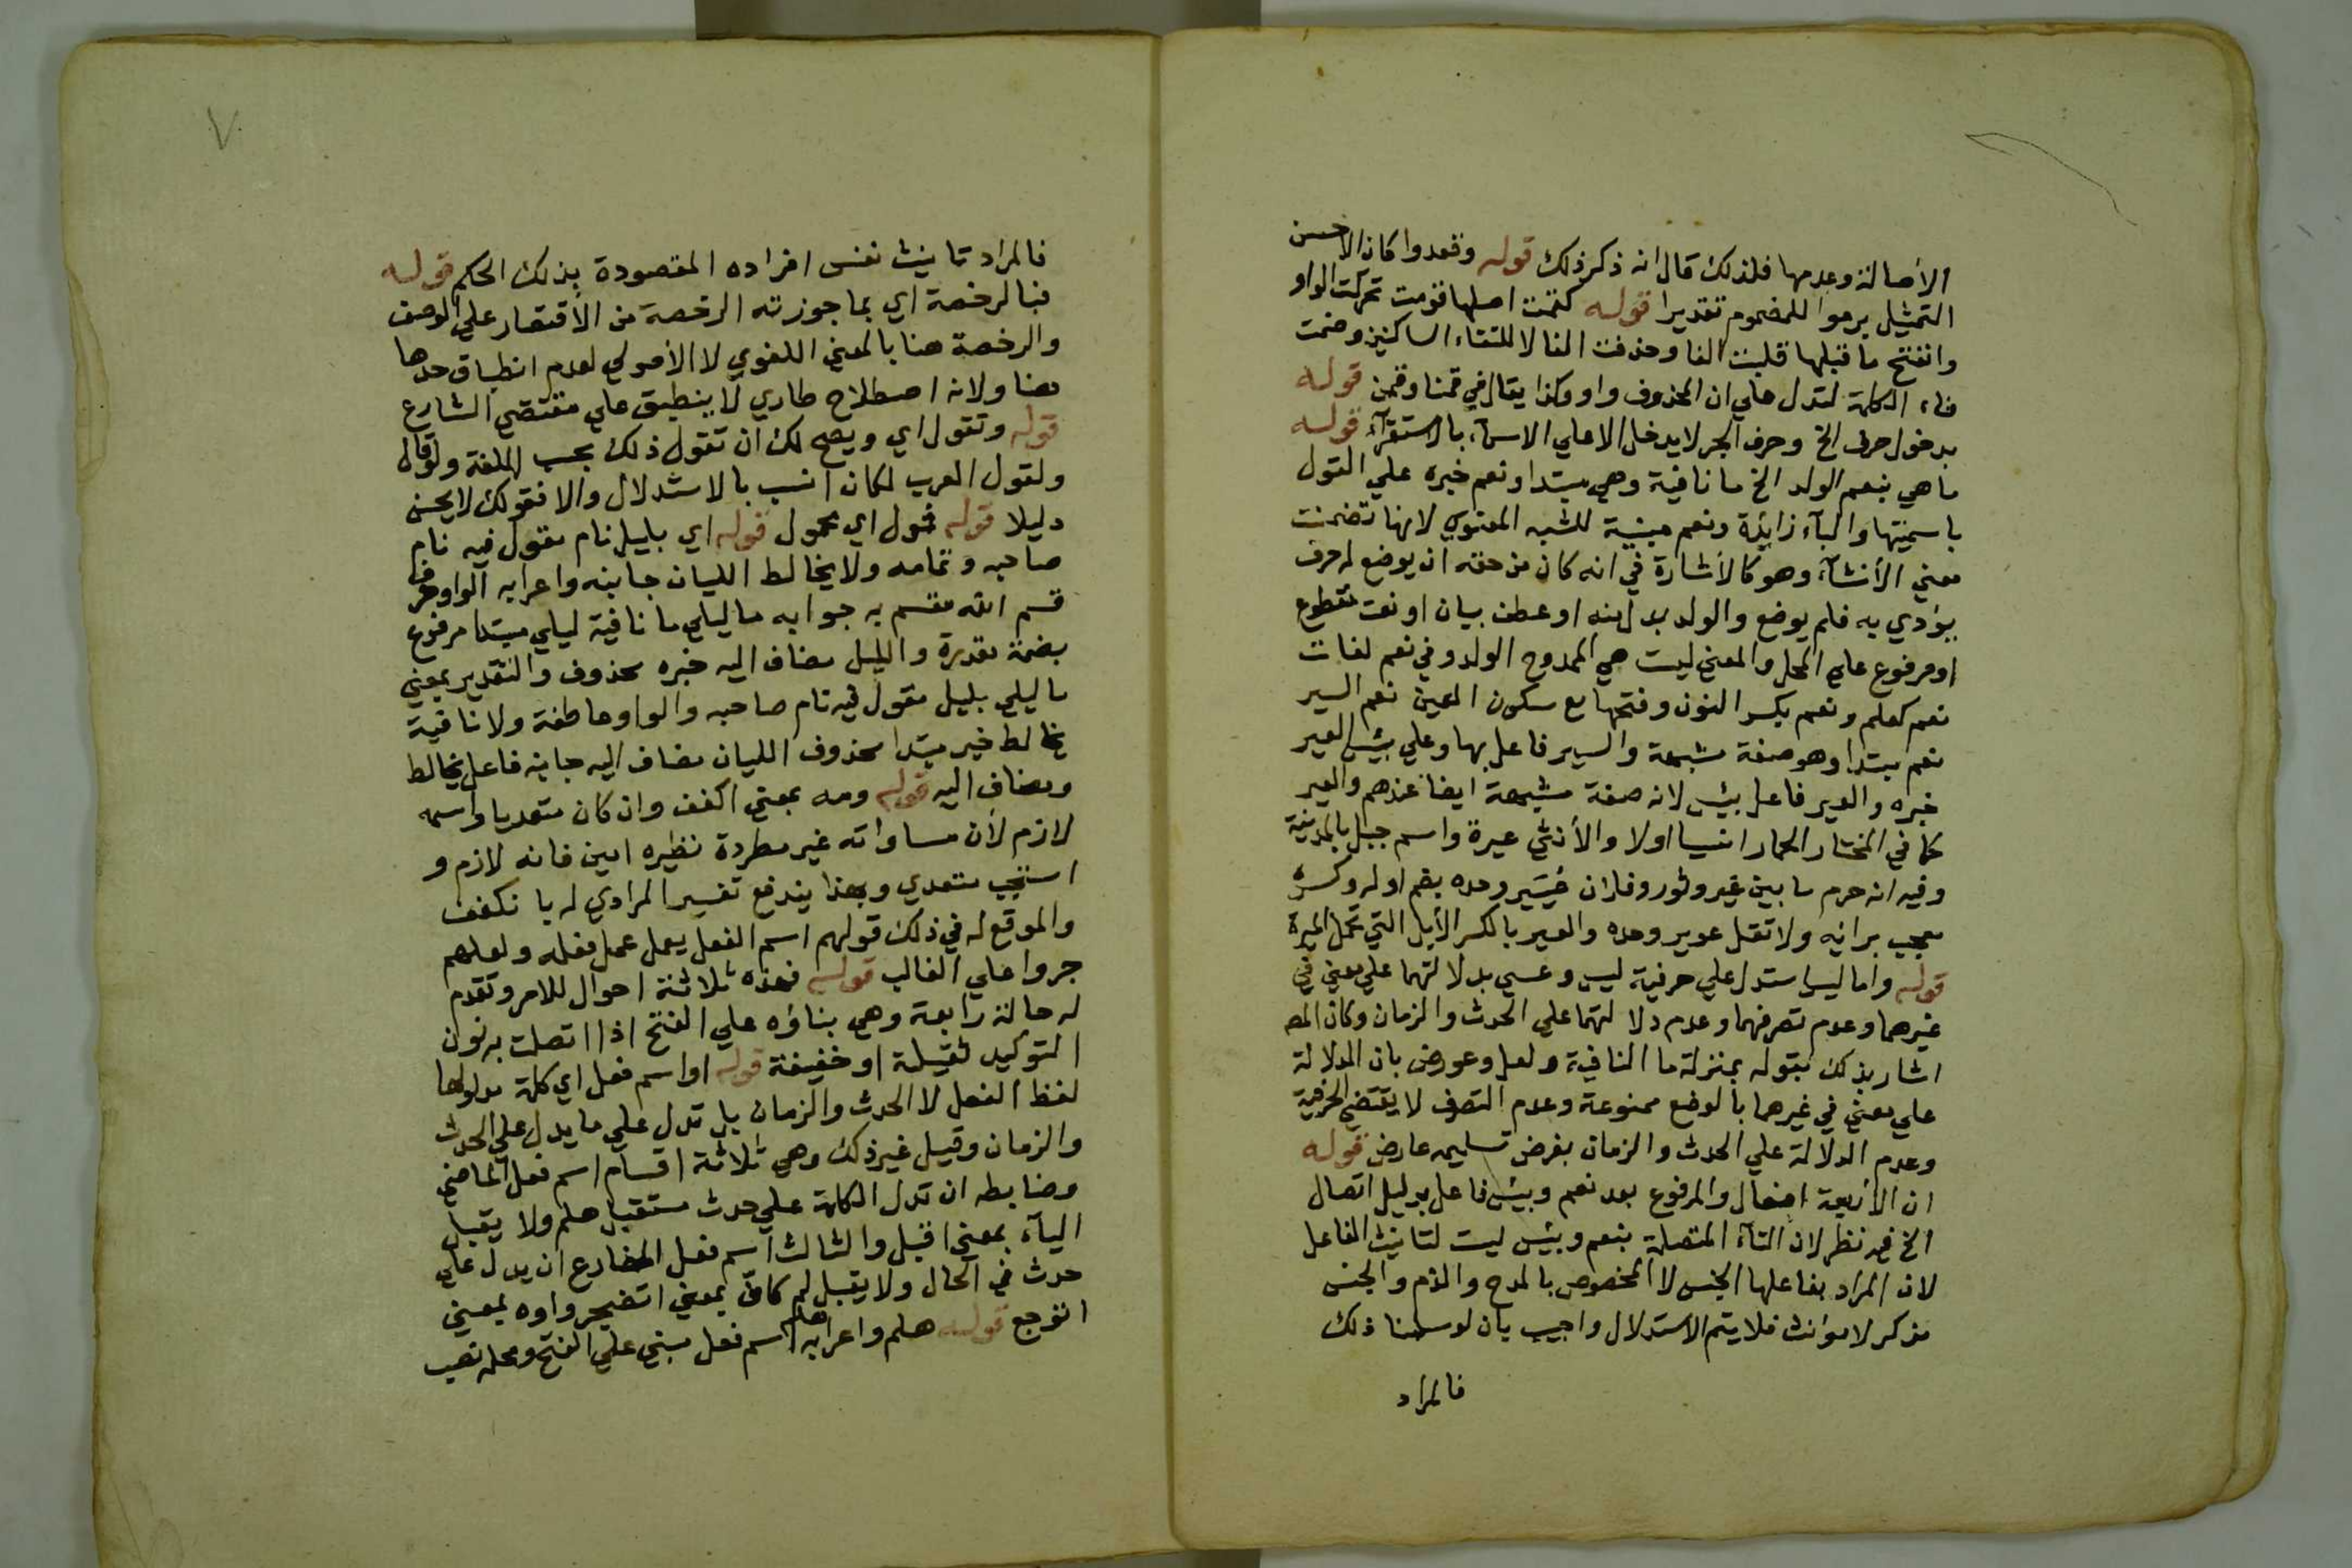 الأصالة وعدمها فلذلك قال انه ذكر ذلك قوله وقعدوا كان الاحسن
التمثيل برموا للمضموم تقديرا قوله كقمت اصلها قومت تحركت الواو
وانفتح ما قبلها قلبت الفا وحذفت الفا لالتقاء الساكنين وضمت
فاء الكلمة لتدل علي ان المحذوف واو وكذا يقال في قمنا وقمن قوله
بدخول حرف الخ وحرف الجر لا يدخل الا علي الاسمآء بالاستقرآء قوله
ما هي بنعم الولد الخ ما نافية وهي مبتدا ونعم خبره علي القول
باسميتها والبآء زايدة ونعم مبنية للشبه المعنوي لانها تضمنت
معني الأنشآء وهو كالأشارة في انه كان من حقه ان يوضع له حرف
يؤدي به فلم يوضع والولد بدل منه او عطف بيان او نعت مقطوع
او مرفوع علي المحل والمعني ليست هي الممدوح الولد وفي نعم لغات
نعم كعلم ونعم بكسر النون وفتحها مع سكون العين نعم السير
نعم مبتدا وهو صفة مشبهة والسير فاعل بها وعلي بئس العير
خبره والعير فاعل بئس لانه صفة مشبهة ايضا عندهم والعير
كما في المختار الحمار انسيا اولا والأنثي عيرة واسم جبل بالمدينة
وفيه انه حرم ما بين عير وثور وفلان عُيَيْر وحده بضم اوله وكسره
معجب برايه ولا تقل عوير وحده والعير بالكسر الأبل التي تحمل الميرة
قوله واما ليس استدل علي حرفية ليس وعسي بدلالتهما علي معني في
غيرهما وعدم تصرفهما وعدم دلالتهما علي الحدث والزمان وكان المصـ
اشار بذلك بقوله بمنزلة ما النافية ولعل وعورض بان الدلالة
علي معني في غيرهما بالوضع ممنوعة وعدم التصرف لا يقتضي الحرفية
وعدم الدلالة علي الحدث والزمان بفرض تسليمه عارض قوله
ان الأربعة افعال والمرفوع بعد نعم وبئس فاعل بدليل اتصال
الخ فيه نظر لان التآء المتصلة بنعم وبئس ليست لتانيث الفاعل
لان المراد بفاعلها الجنس لا المخصوص بالمدح والذم والجنس
مذكر لا مؤنث فلا يتم الاستدلال واجيب بان لو سلمنا ذلك
فالمراد
٧
فالمراد تانيث نفس افراده المقصودة بذلك الحكم قوله
فبالرخصة اي بما جوزته الرخصة من الأقتصار علي الوصف
والرخصة هنا بالمعني اللغوي لا الأصولي لعدم انطباق حدها
هنا ولانه اصطلاح طاري لا ينطبق علي مقتضي الشارع
قوله وتقول اي ويصح لك ان تقول ذلك بحسب اللغة ولو قال
ولقول العرب لكان انسب بالاستدلال والا فقولك لا يحسن
دليلا قوله فمول اي محمول قوله اي بليل نام مقول فيه نام
صاحبه وتمامه ولا يخالط الليان جانبه واعرابه الواو حرف
قسم الله مقسم به جوابه ما ليلي ما نافية ليلي مبتدا مرفوع
بضمة مقدرة والليل مضاف اليه خبره محذوف والتقدير بمعني
ما ليلي بليل مقول فيه نام صاحبه والواو عاطفة ولا نافية
يخالط خبر مبتدا محذوف الليان مضاف اليه جانبه فاعل يخالط
ومضاف اليه قوله ومه بمعني اكفف وان كان متعديا واسمه
لازم لأن مساواته غير مطردة نظيره امين فانه لازم و
استجب متعدي وبهذا يندفع تفسير المرادي له بانكفف
والموقع له في ذلك قولهم اسم الفعل يعمل عمل فعله ولعلهم
جروا علي الغالب قوله فهذه ثلاثة احوال للامر وتقدم
له حالة رابعة وهي بناؤه علي الفتح اذا اتصلت به نون
التوكيد ثقيلة او خفيفة قوله او اسم فعل اي كلمة مدلولها
لفظ الفعل لا الحدث والزمان بل تدل علي ما يدل علي الحدث
والزمان وقيل غير ذلك وهي ثلاثة اقسام اسم فعل الماضي
وضابطه ان تدل الكلمة علي حدث مستقبل هلم ولا يقبل
اليآء بمعني اقبل والثالث اسم فعل المضارع ان يدل علي
حدث في الحال ولا يقبل لم كافّ بمعني اتضجر واوه بمعني
اتوجع قوله هلم واعرابه هلم اسم فعل مبني علي الفتح ومحله نصب